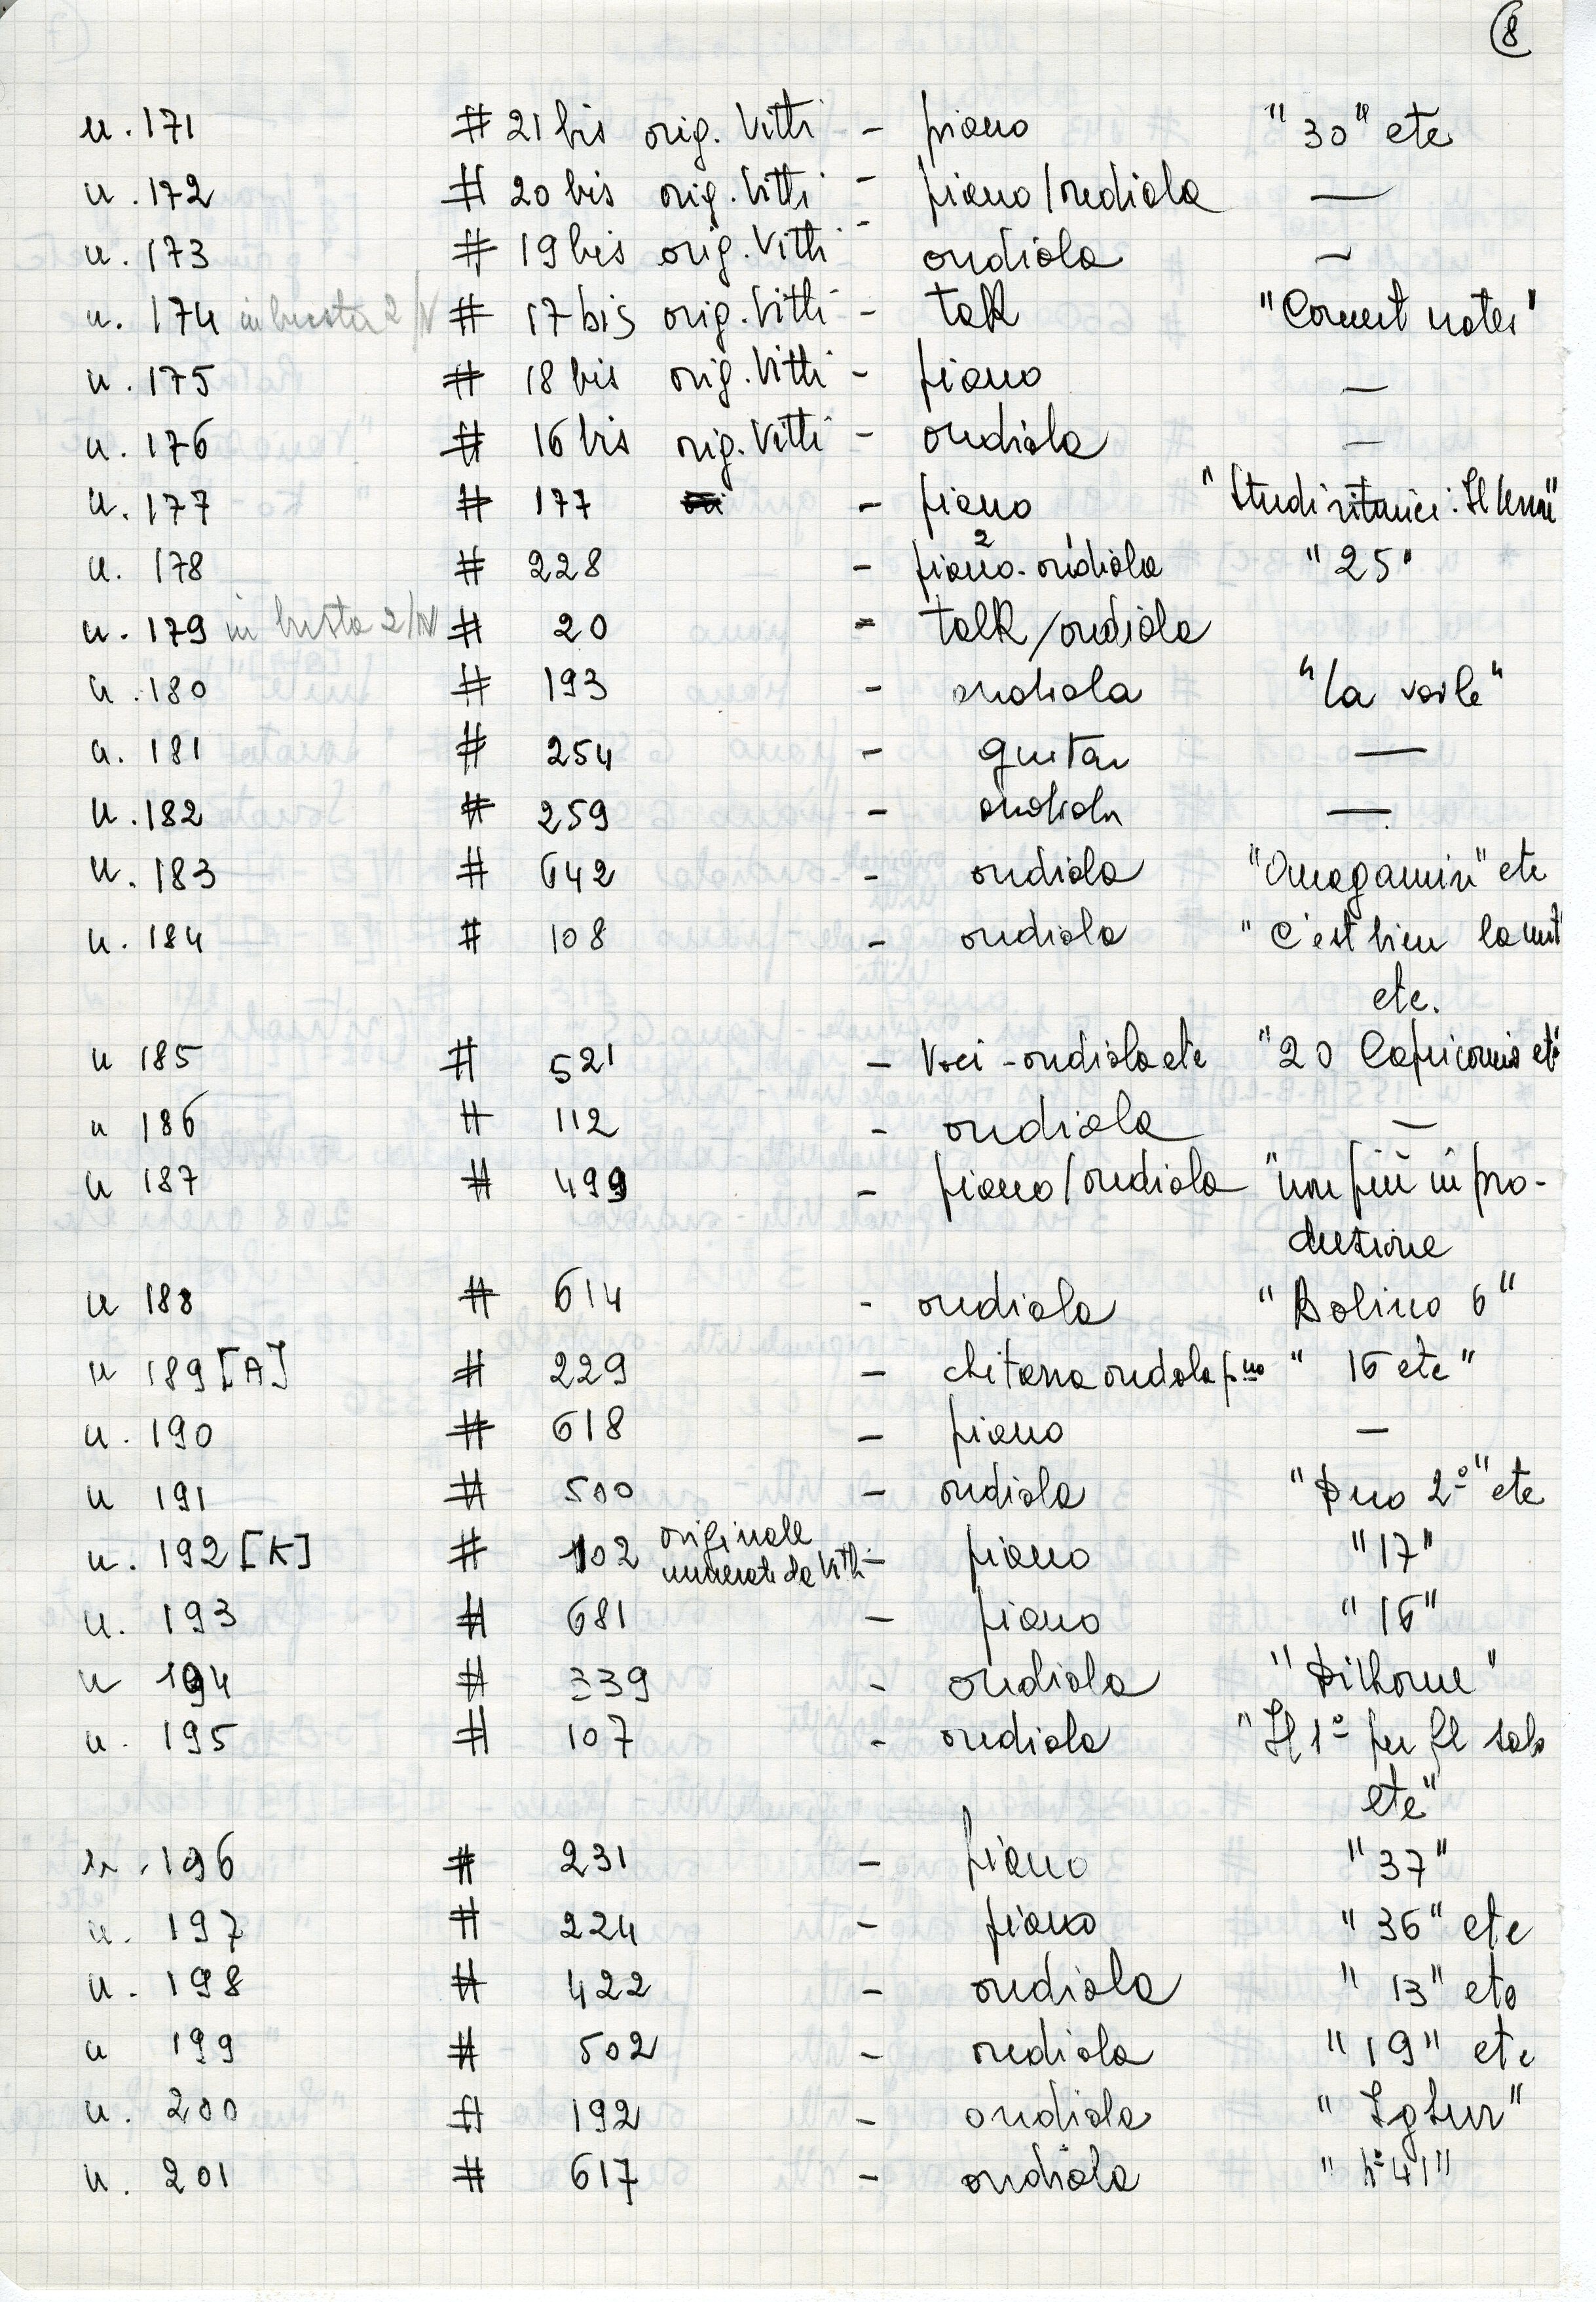 8
n. 171 # 21 bis orig. Vitti - piano "30" etc
n. 172 # 20 bis orig. Vitti - piano/ondiola —
n. 173 # 19 bis orig. Vitti - ondiola —
n. 174 in busta 2/N # 17 bis orig. Vitti - talk "Convert notes"
n. 175 # 18 bis orig. Vitti - piano —
n. 176 # 16 bis orig. Vitti - ondiola —
n. 177 # 177 - piano "Studi ritmici: Il
n. 178 # 228 - piano 2 - ondiola 1 "25"
n. 179 in busta 2/N # 20 - talk/ondiola
n. 180 # 193 - ondiola "La voile"
n. 181 # 254 - guitar —
n. 182 # 259 - ondiola —
n. 183 # 642 - ondiola "Omagamiri" etc
n. 184 # 108 - ondiola "C'est bien la nuit
etc.
n 185 # 521 - voci - ondiola etc "20 Capricornis etc"
n 186 # 112 - ondiola —
n 187 # 499 - piano/ondiola "non più in pro-
duzione
n 188 # 614 - ondiola "Bolino 6"
n 189 [A] # 229 - chitarra ondiola p.no "16 etc"
n. 190 # 618 - piano —
n 191 # 500 - ondiola "Duo 2º" etc
n. 192 [K] # 102 originale numerato da Vitti - piano "17"
n. 193 # 681 - piano "16"
n 194 # 339 - ondiola "Dithome"
n. 195 # 107 - ondiola "Il 1º per fl solo
etc"
n. 196 # 231 - piano "37"
n. 197 # 224 - piano "36" etc
n. 198 # 422 - ondiola "13" etc
n 199 # 502 - ondiola "19" etc
n. 200 # 192 - ondiola "Igtur"
n. 201 # 617 - ondiola "nº 41"